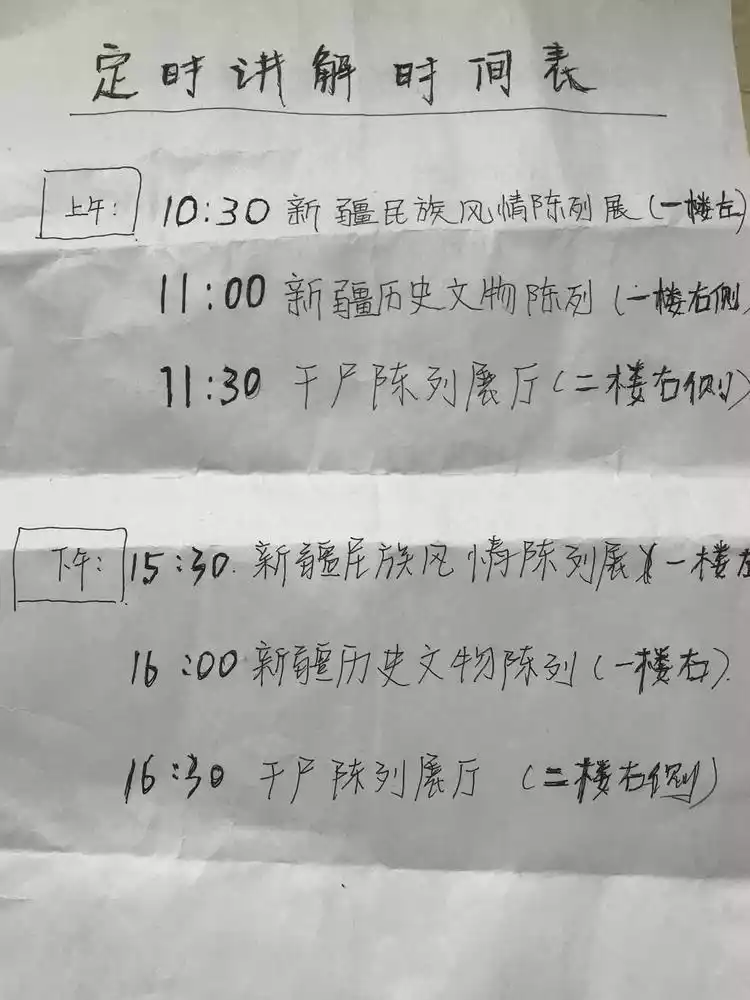 定时讲解时间表
上午: 10:30 新疆民族风情陈列展(一楼左)
11:00 新疆历史文物陈列(一楼右侧)
11:30 干尸陈列展厅(二楼右侧)
下午: 15:30. 新疆民族风情陈列展(一楼左
16:00 新疆历史文物陈列(一楼右).
16:30 干尸陈列展厅 (二楼右侧)